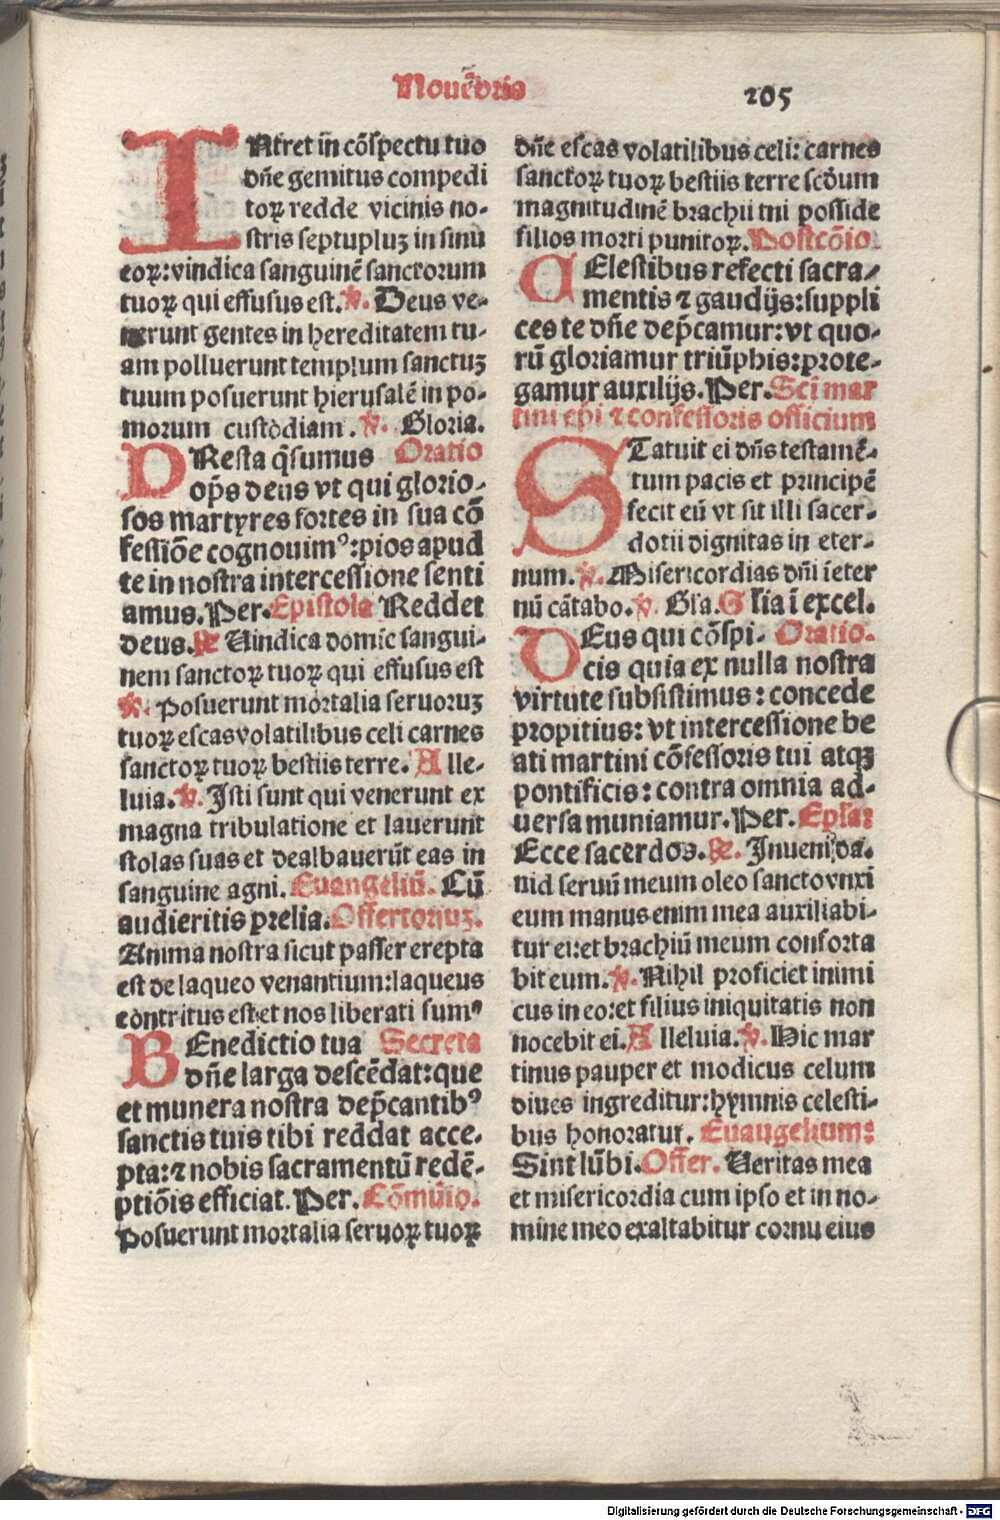 Nouēbris
205
INtret in cōspectu tuo
dñe gemitus compedi
toꝝ redde vicinis no-
stris septupluꝫ in sinū
eoꝝ: vindica sanguinē sanctorum
tuoꝝ qui effusus est. ℣. Deus ve-
nerunt gentes in hereditatem tu-
am polluerunt templum sanctuꝫ
tuum posuerunt hierusalē in po-
morum custodiam. ℣. Gloria.
PResta q̄sumus Oratio
op̄s deus vt qui glorio-
sos martyres fortes in sua cō
fessiōe cognouimꝰ: pios apud
te in nostra intercessione senti
amus. Per. Epistola Reddet
deus. ℟ Uindica domie sangui-
nem sanctoꝝ tuoꝝ qui effusus est
℣. Posuerunt mortalia seruoruꝫ
tuoꝝ escas volatilibus celi carnes
sanctoꝝ tuoꝝ bestiis terre. Alle-
luia. ℣. Isti sunt qui venerunt ex
magna tribulatione et lauerunt
stolas suas et dealbauerūt eas in
sanguine agni. Euangeliū. Cū
audieritis prelia. Offertoriuꝫ.
Anima nostra sicut passer erepta
est de laqueo venantium: laqueus
contritus est et nos liberati sumꝰ
BEnedictio tua Secreta
dñe larga descēdat: que
et munera nostra dep̄cantibꝰ
sanctis tuis tibi reddat acce-
pta: ⁊ nobis sacramentū redē-
ptiōis efficiat. Per. Cōmūio.
Posuerunt mortalia seruoꝝ tuoꝝ
dñe escas volatilibus celi: carnes
sanctoꝝ tuoꝝ bestiis terre scd̄um
magnitudinē brachii tui posside
filios morti punitoꝝ. Postcōio.
CElestibus refecti sacra-
mentis ⁊ gaudijs: suppli
ces te dñe dep̄camur: vt quo-
rū gloriamur triūphis: prote-
gamur auxilijs. Per. Scī mar
tini ep̄i ⁊ confessoris officium
STatuit ei dn̄s testamē-
tum pacis et principē
fecit eū vt sit illi sacer-
dotii dignitas in eter-
num. ℣. Misericordias dn̄i ī eter
nū cātabo. ℣. Gl̄a. Glia ī excel.
DEus qui cōspi- Oratio.
cis quia ex nulla nostra
virtute subsistimus: concede
propitius: vt intercessione be
ati martini cōfessoris tui atqꝫ
pontificis: contra omnia ad-
uersa muniamur. Per. Epl̄a:
Ecce sacerdos. ℟. Inueni da-
uid seruū meum oleo sancto vnxi
eum manus enim mea auxiliabi-
tur ei: et brachiū meum conforta
bit eum. ℣. Nihil proficiet inimi
cus in eo: et filius iniquitatis non
nocebit ei. Alleluia. ℣. Hic mar
tinus pauper et modicus celum
diues ingreditur: hymnis celesti-
bus honoratur. Euangelium:
Sint lūbi. Offer. Ueritas mea
et misericordia cum ipso et in no-
mine meo exaltabitur cornu eius
Digitalisierung gefördert durch die Deutsche Forschungsgemeinschaft - DFG